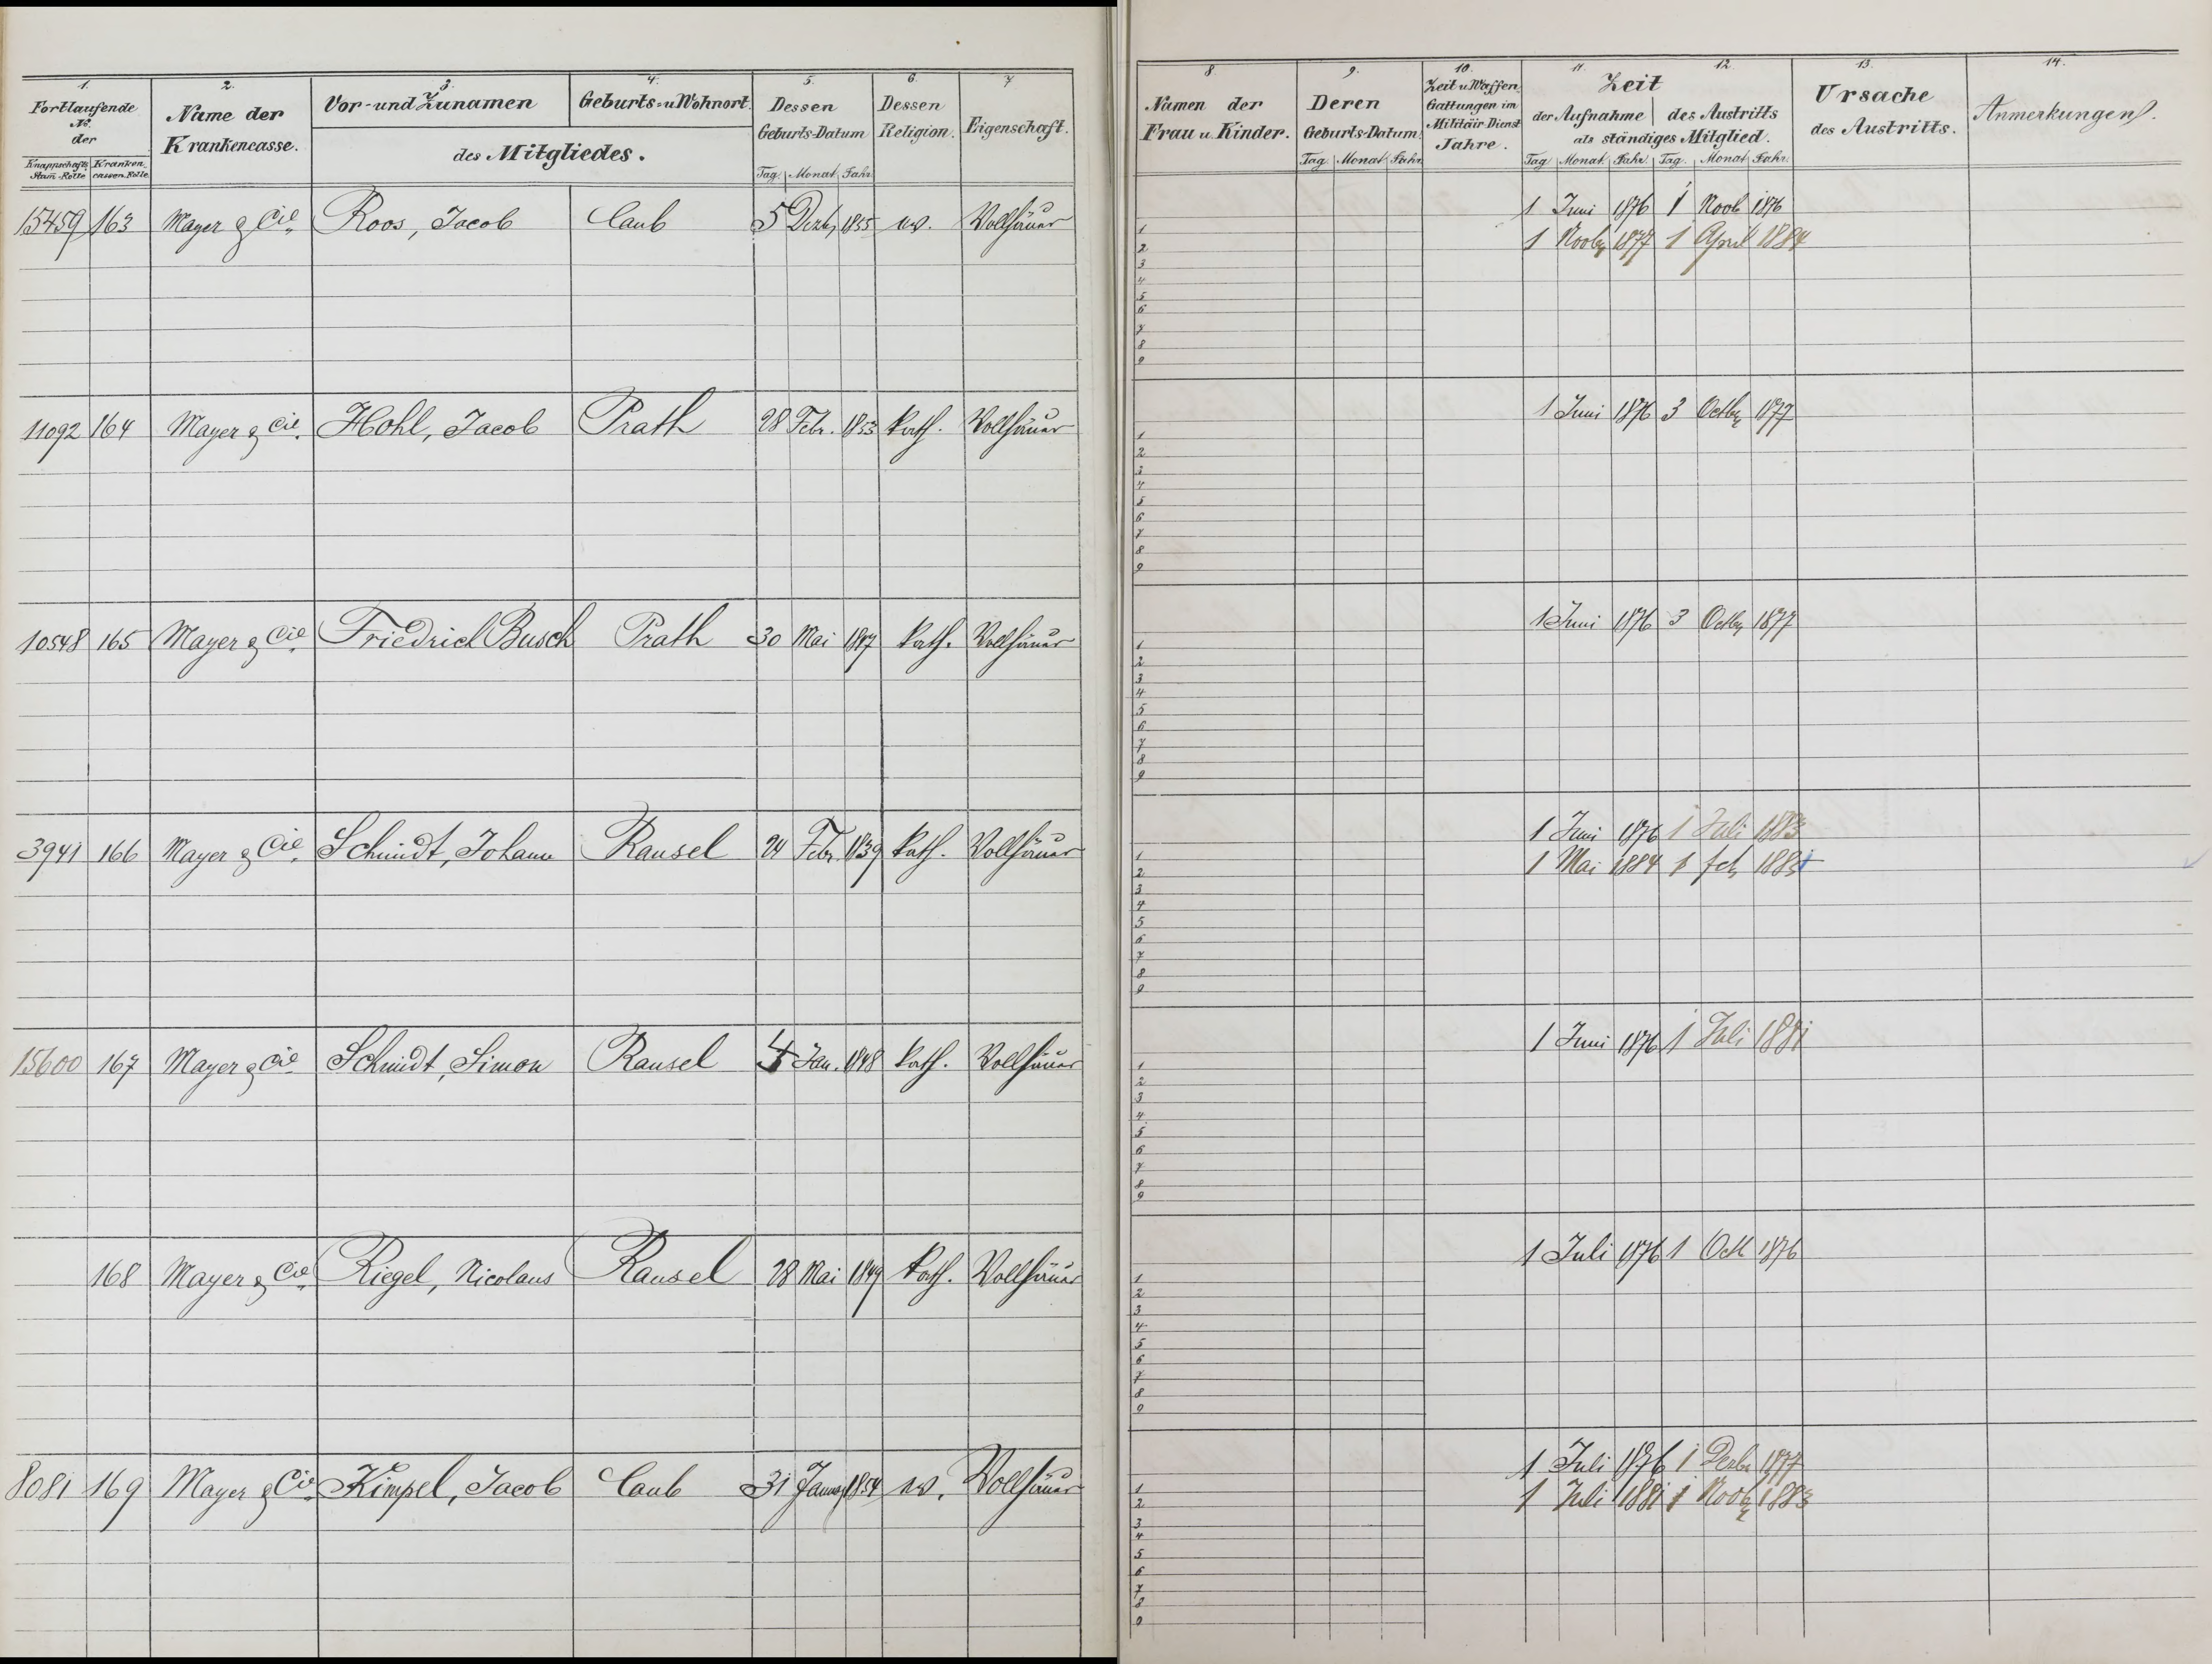 1. 2. 3. 4. 5. 6. 7
Fortlaufende No. der
Knappschafts Stam-Rolle Kranken cassen-Rolle
Name der Krankencasse.
Vor- und Zunamen Geburts- u Wohnort.
des Mitgliedes.
Dessen Geburts-Datum
Tag. Monat. Jahr.
Dessen Religion.
Eigenschaft.
15459 163 Mayer & Cie. Roos, Jacob Caub 5 Dezb, 1855 ev. Vollhäuer
11092 164 Mayer & Cie. Hohl, Jacob Prath 28 Febr. 1853 kath. Vollhäuer
10548 165 Mayer & Cie. Friedrich Busch Prath 30 Mai kath. Vollhäuer
3941 166 Mayer & Cie. Schmidt, Johann Ransel 24 Febr. 1839 kath. Vollhäuer
15600 167 Mayer & Cie. Schmidt, Simon Ransel Jan. 1848 kath. Vollhäuer
168 Mayer & Cie. Riegel, Nicolaus Ransel 28 Mai 1849 kath. Vollhäuer
8081 169 Mayer & Cie. Kimpel, Jacob Caub 31 Januar 1854 ev. Vollhäuer
8 9. 10. 11. 12. 13. 14.
Namen der Frau u. Kinder.
Deren Geburts-Datum.
Tag. Monat. Jahr.
Zeit u Waffen Gattungen im Militäir Dienst Jahre.
Zeit
der Aufnahme des Austritts
als ständiges Mitglied.
Tag Monat Jahr. Tag. Monat Jahr.
Ursache des Austritts.
Anmerkungen.
1 Juni 1876 1 Novb 1876
1 Novbr 1877 1 April 1884
1 2 3 4 5 6 7 8 9
1 Juni 1876 3 Octbr 1877
1 2 3 4 5 6 7 8 9
1 Juni 1876 3 Octbr 1877
1 2 3 4 5 6 7 8 9
1 Juni 1876 1 Juli 1883
1 Mai 1884 1 feb
1 2 3 4 5 6 7 8 9
1 Juni 1876 1 Juli 1881
1 2 3 4 5 6 7 8 9
1 Juli 1876 1 Oct 1876
1 2 3 4 5 6 7 8 9
1 Juli 1876 1 Dezbr 1877
1 Juli 1881 1 Novbr 1883
1 2 3 4 5 6 7 8 9